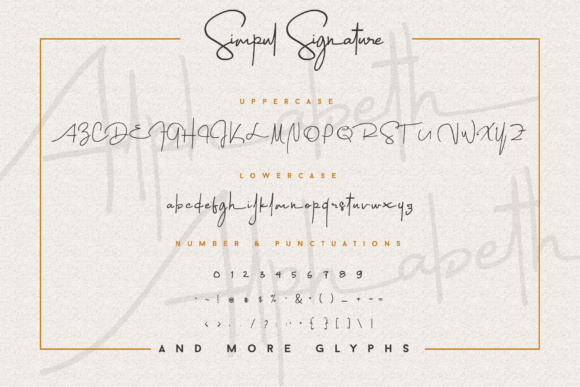 Simpul Signature
UPPERCASE
ABCDEFGHIJKLMNOPQRSTUVWXYZ
LOWERCASE
abcdefghijklmnopqrstuvwxyz
NUMBER & PUNCTUATIONS
0 1 2 3 4 5 6 7 8 9
{ } [ ] \ |
AND MORE GLYPHS
Alphabeth
Alphabeth